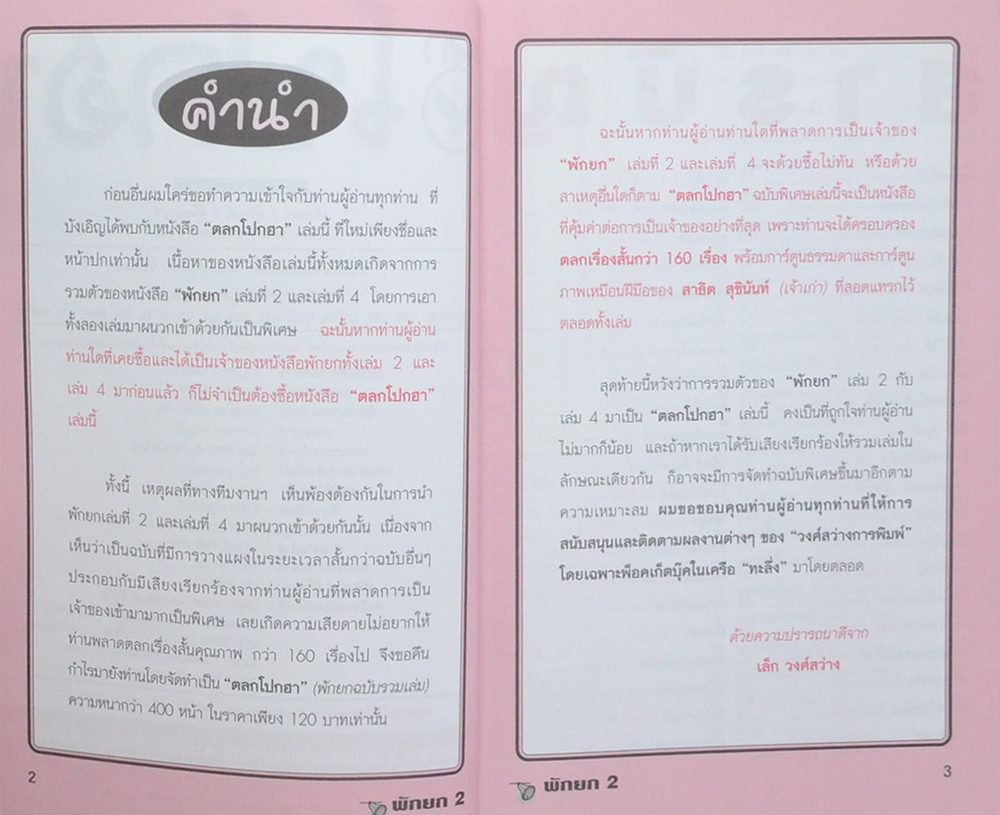 คำนำ
ก่อนอื่นผมใคร่ขอทำความเข้าใจกับท่านผู้อ่านทุกท่าน ที่
บังเอิญได้พบกับหนังสือ “ตลกโปกฮา” เล่มนี้ ที่ใหม่เพียงชื่อและ
หน้าปกเท่านั้น เนื้อหาของหนังสือเล่มนี้ทั้งหมดเกิดจากการ
รวมตัวของหนังสือ “พักยก” เล่มที่ 2 และเล่มที่ 4 โดยการเอา
ทั้งสองเล่มมาผนวกเข้าด้วยกันเป็นพิเศษ ฉะนั้นหากท่านผู้อ่าน
ท่านใดที่เคยซื้อและได้เป็นเจ้าของหนังสือพักยกทั้งเล่ม 2 และ
เล่ม 4 มาก่อนแล้ว ก็ไม่จำเป็นต้องซื้อหนังสือ “ตลกโปกฮา”
เล่มนี้
ทั้งนี้ เหตุผลที่ทางทีมงานฯ เห็นพ้องต้องกันในการนำ
พักยกเล่มที่ 2 และเล่มที่ 4 มาผนวกเข้าด้วยกันนั้น เนื่องจาก
เห็นว่าเป็นฉบับที่มีการวางแผงในระยะเวลาสั้นกว่าฉบับอื่นๆ
ประกอบกับมีเสียงเรียกร้องจากท่านผู้อ่านที่พลาดการเป็น
เจ้าของเข้ามามากเป็นพิเศษ เลยเกิดความเสียดายไม่อยากให้
ท่านพลาดตลกเรื่องสั้นคุณภาพ กว่า 160 เรื่องไป จึงขอคืน
กำไรมายังท่านโดยจัดทำเป็น “ตลกโปกฮา” (พักยกฉบับรวมเล่ม)
ความหนากว่า 400 หน้า ในราคาเพียง 120 บาทเท่านั้น
2
พักยก 2
ฉะนั้นหากท่านผู้อ่านท่านใดที่พลาดการเป็นเจ้าของ
“พักยก” เล่มที่ 2 และเล่มที่ 4 จะด้วยซื้อไม่ทัน หรือด้วย
สาเหตุอื่นใดก็ตาม “ตลกโปกฮา” ฉบับพิเศษเล่มนี้จะเป็นหนังสือ
ที่คุ้มค่าต่อการเป็นเจ้าของอย่างที่สุด เพราะท่านจะได้ครอบครอง
ตลกเรื่องสั้นกว่า 160 เรื่อง พร้อมการ์ตูนธรรมดาและการ์ตูน
ภาพเหมือนฝีมือของ สาธิต สุขินันท์ (เจ้าเก่า) ที่สอดแทรกไว้
ตลอดทั้งเล่ม
สุดท้ายนี้หวังว่าการรวมตัวของ “พักยก” เล่ม 2 กับ
เล่ม 4 มาเป็น “ตลกโปกฮา” เล่มนี้ คงเป็นที่ถูกใจท่านผู้อ่าน
ไม่มากก็น้อย และถ้าหากเราได้รับเสียงเรียกร้องให้รวมเล่มใน
ลักษณะเดียวกัน ก็อาจจะมีการจัดทำฉบับพิเศษขึ้นมาอีกตาม
ความเหมาะสม ผมขอขอบคุณท่านผู้อ่านทุกท่านที่ให้การ
สนับสนุนและติดตามผลงานต่างๆ ของ “วงศ์สว่างการพิมพ์”
โดยเฉพาะพ็อคเก็ตบุ๊คในเครือ “ทะลึ่ง” มาโดยตลอด
ด้วยความปรารถนาดีจาก
เล็ก วงศ์สว่าง
พักยก 2
3